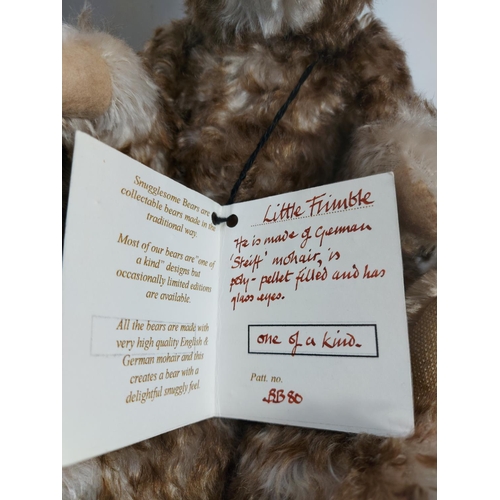 Snugglesome Bears are
collectable bears made in the
traditional way.
Most of our bears are "one of
a kind" designs but
occasionally limited editions
are available.
All the bears are made with
very high quality English &
German mohair and this
creates a bear with a
delightful snuggly feel.
Little Frimble
He is made of German
'Steiff' mohair, is
poly-pellet filled and has
glass eyes.
one of a kind.
Patt. no.
BB80